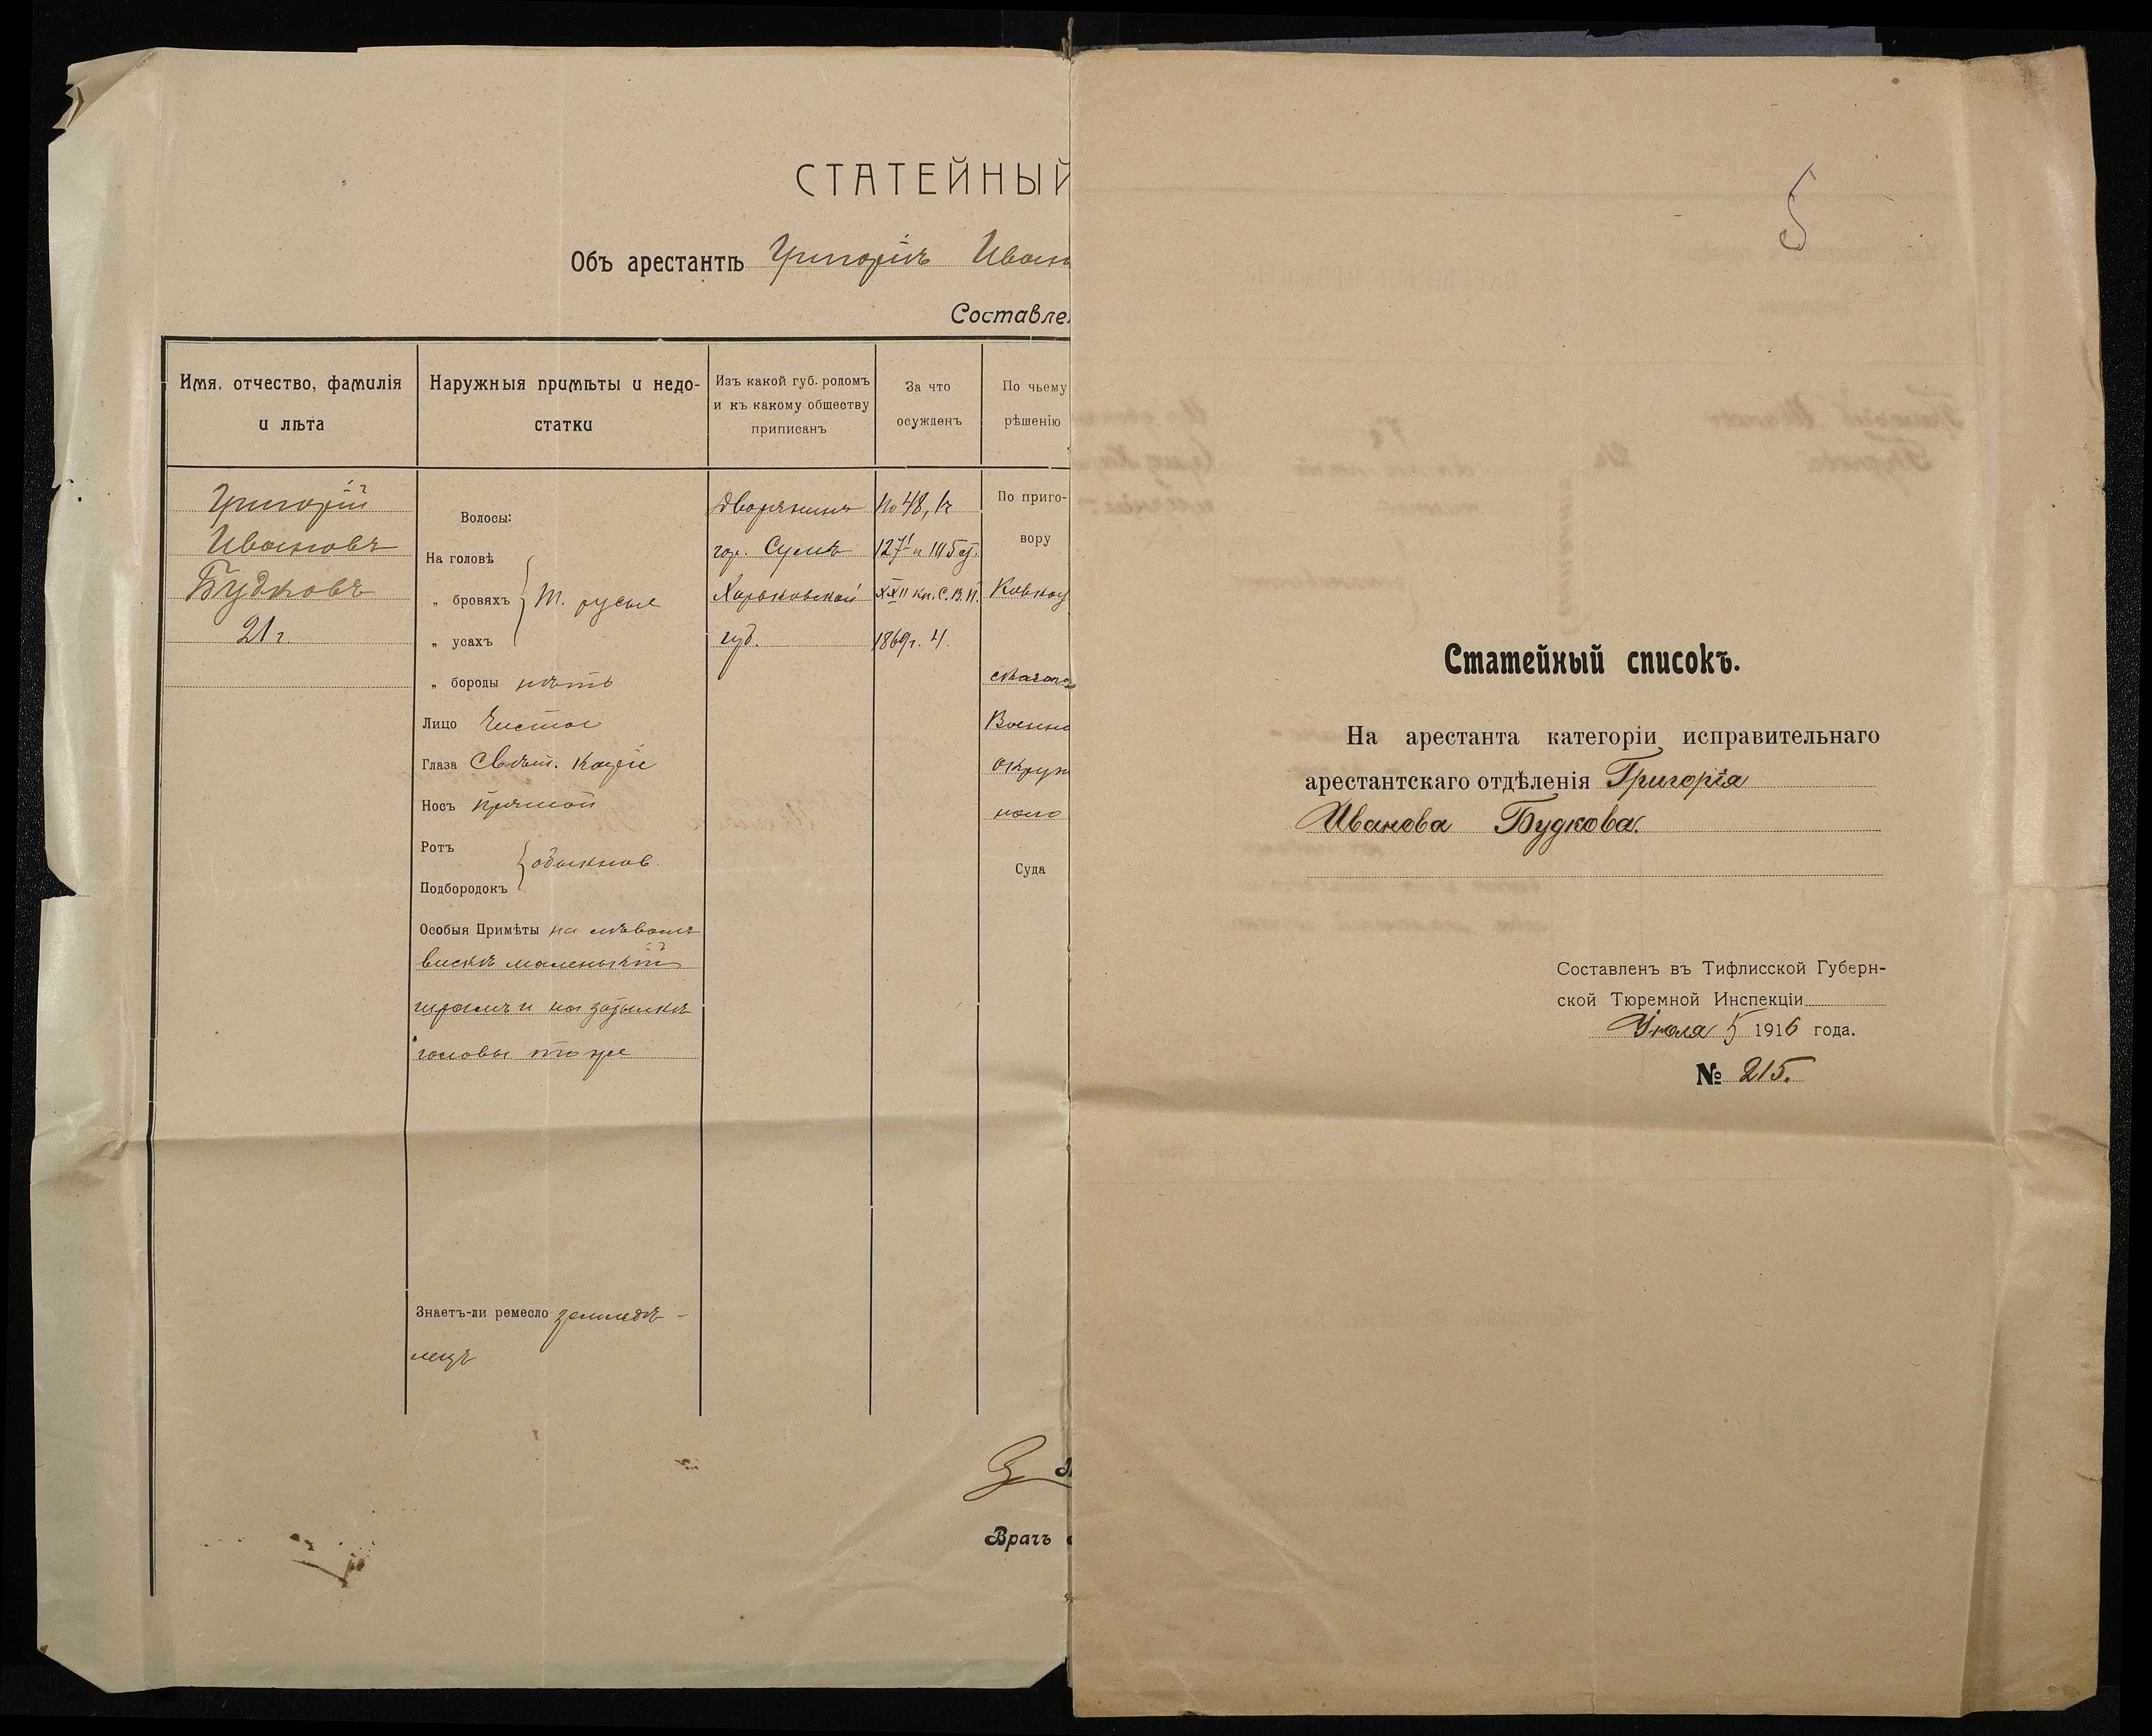 СТАТЕЙНЫЙ
Объ арестантѣ Григоріѣ Иван
Составле
Имя, отчество, фамилія
и лѣта
Наружныя примѣты и недо-
статки
Изъ какой губ. родомъ
и къ какому обществу
приписанъ
За что
осужденъ
По чьему
рѣшенію
Григорій
Ивановъ
Будковъ
21 г
Волосы:
На головѣ
„ бровяхъ Т. русые
„ усахъ
„ бороды нѣтъ
Лицо чистое
Глаза Свѣт. каріе
Носъ прямой
Ротъ
обыкнов.
Подбородокъ
Особыя Примѣты на лѣвомъ
вискѣ маленькій
шрамъ и на затылкѣ
головы тоже
Знаетъ-ли ремесло земледѣ-
лецъ
дворянинъ
гор. Сумъ
Харьковской
губ.
По 48, 1ч
127¹ и 115 ст.
XXII кн. С. В. П.
1869 г.
По приго-
вору
Кавказ
скаго
Военно
окруж
наго
Суда
Врачъ
5
Статейный списокъ.
На арестанта категоріи исправительнаго
арестантскаго отдѣленія Григорія
Иванова Будкова.
Составленъ въ Тифлисской Губерн-
ской Тюремной Инспекціи
Іюля 5 1916 года.
№ 215.